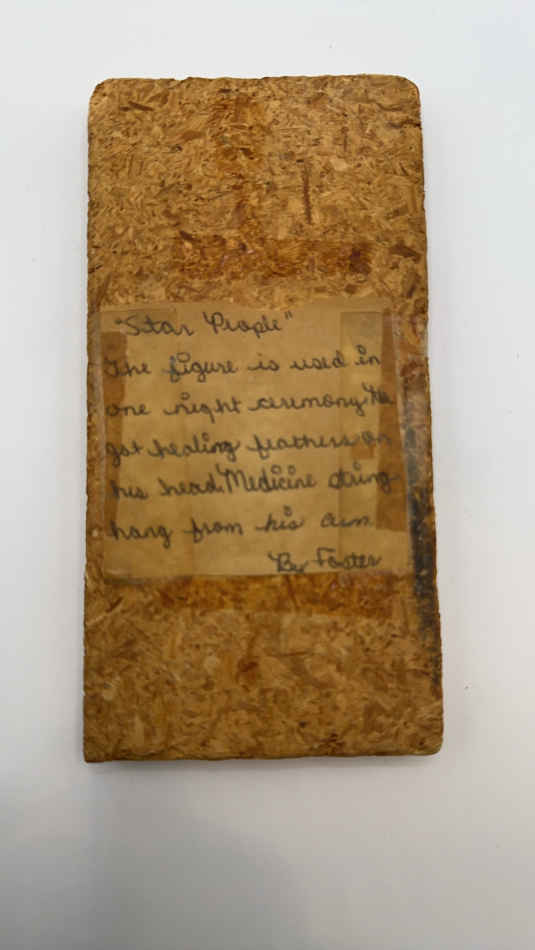 "Star People"
The figure is used in
one night ceremony He
got healing feathers on
his head. Medicine string
hang from his arm
By Foster